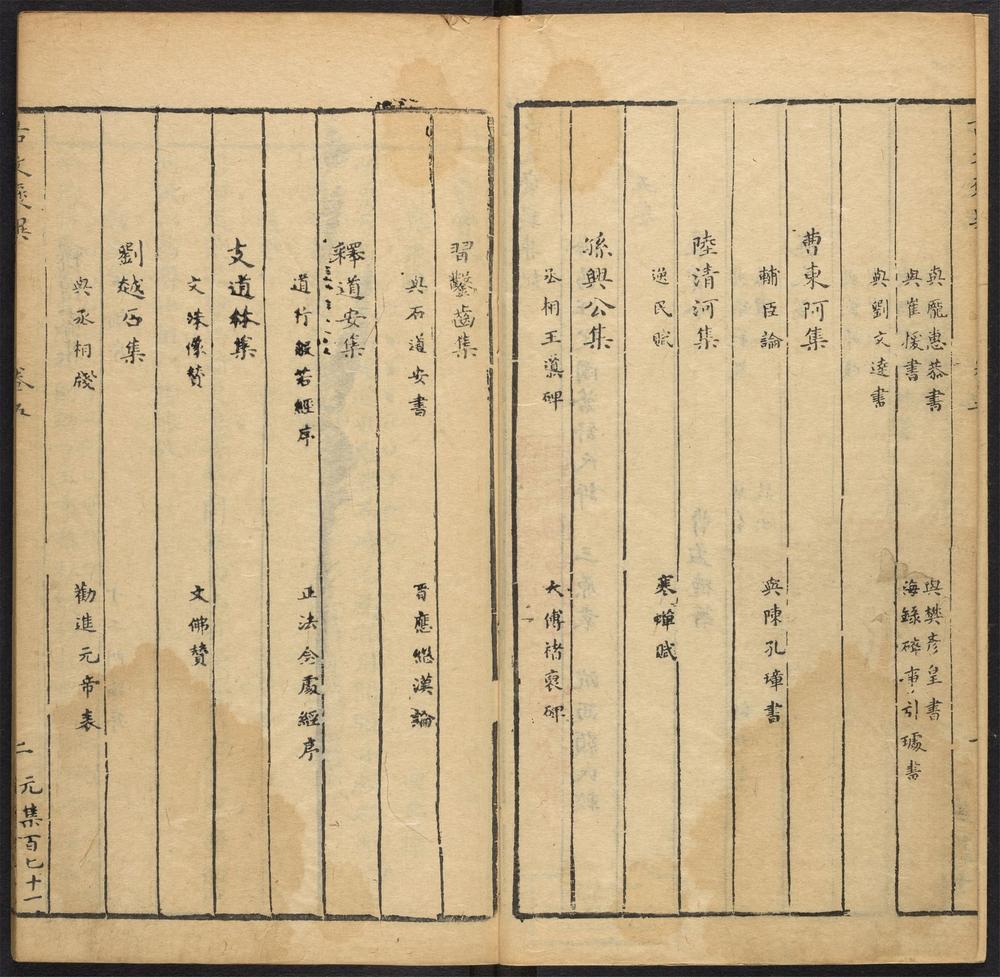 與龐惠恭書
與樊彥皇書
與崔㥄書
海錄碎事引璩書
與劉文達書
曹東阿集
輔臣論
與陳孔璋書
陸清河集
逸民賦
寒蟬賦
孫興公集
丞相王導碑
太傅褚裒碑
習鑿齒集
與石道安書
晉應繼漢論
釋道安集
道行般若經序
正法念處經序
支道林集
文殊像贊
文佛贊
劉越石集
與丞相牋
勸進元帝表
卷五
二
元集百七十一